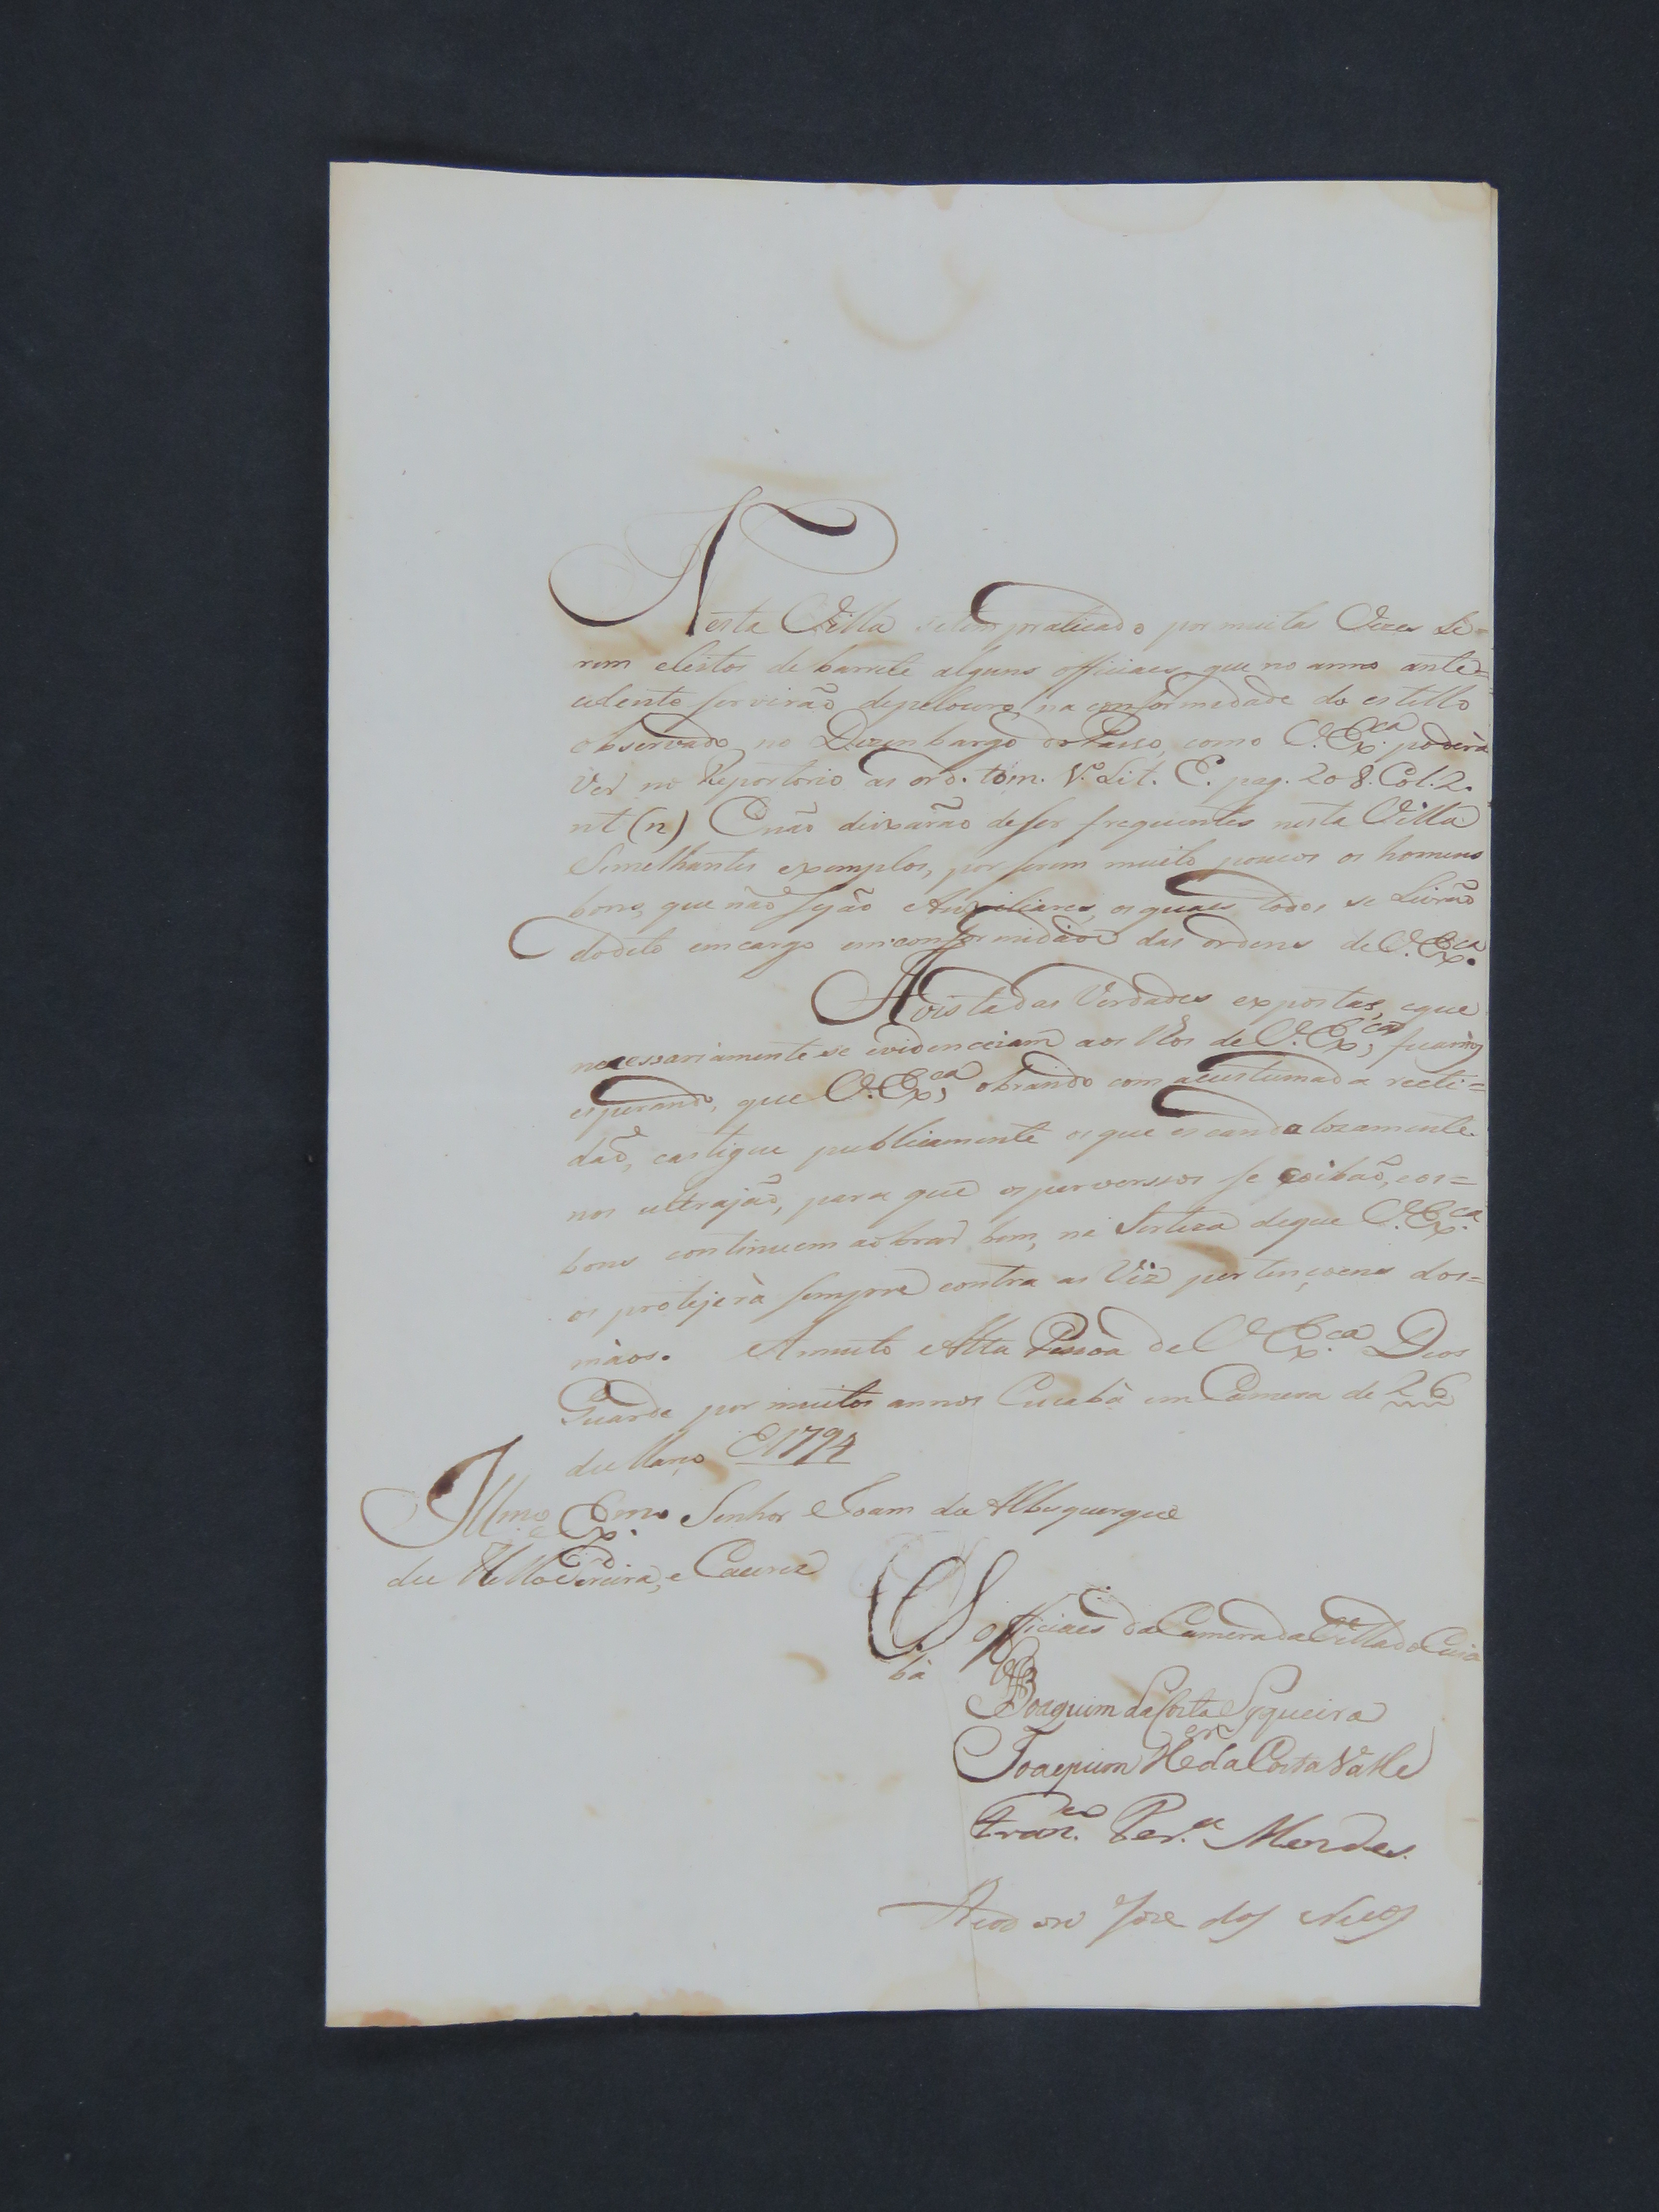 Nesta Villa se tem praticado por muitas Vezes Se=
rem eleitos de barrete alguns officiaes, que no anno ante=
cedente servirão de pelouro, na conformidade do estillo
observado no Dezembargo do Passo, como V. Exca. poderà
Ver no Reportorio as ord. tom. V. Lit. E. pag. 208. Col. 2.
nt (n) E não deixarão de ser frequentes nesta Villa
Semelhantes exemplos, por serem muito poucos os homens
bons, que não sejão Auxiliares, os quaes todos se Livrão
do dito emcargo em conformidade das ordens de V. Exca.
A vista das Verdades expostas, e que
necessariamente se evidenceiam aos olhos de V. Exca, ficamos
esperando, que V. Exca, obrando com acustumada recti=
dão, castigue publicamente os que escandalozamente
nos ultrajão, para que os perverssos se coibão, e os=
bons continuem a obrar bem, na Serteza de que V. Exca.
os protejerà sempre contra as Viz pertençoens dos=
màos. A muito Alta Pessoa de V. Exca. Deos
Guarde por muitos annos Cuiabà em Camera de 26
de Março de 1794
Illmo. e Exmo. Senhor Joam de Albuquerque
de Mello Pereira, e Caceres
Os officiaes da Camera da Villa do Cuia
bà
Joaquim da Costa Syqueira
Joaquim da Costa Valle
Franco. Pera. Mendes.
Joze dos